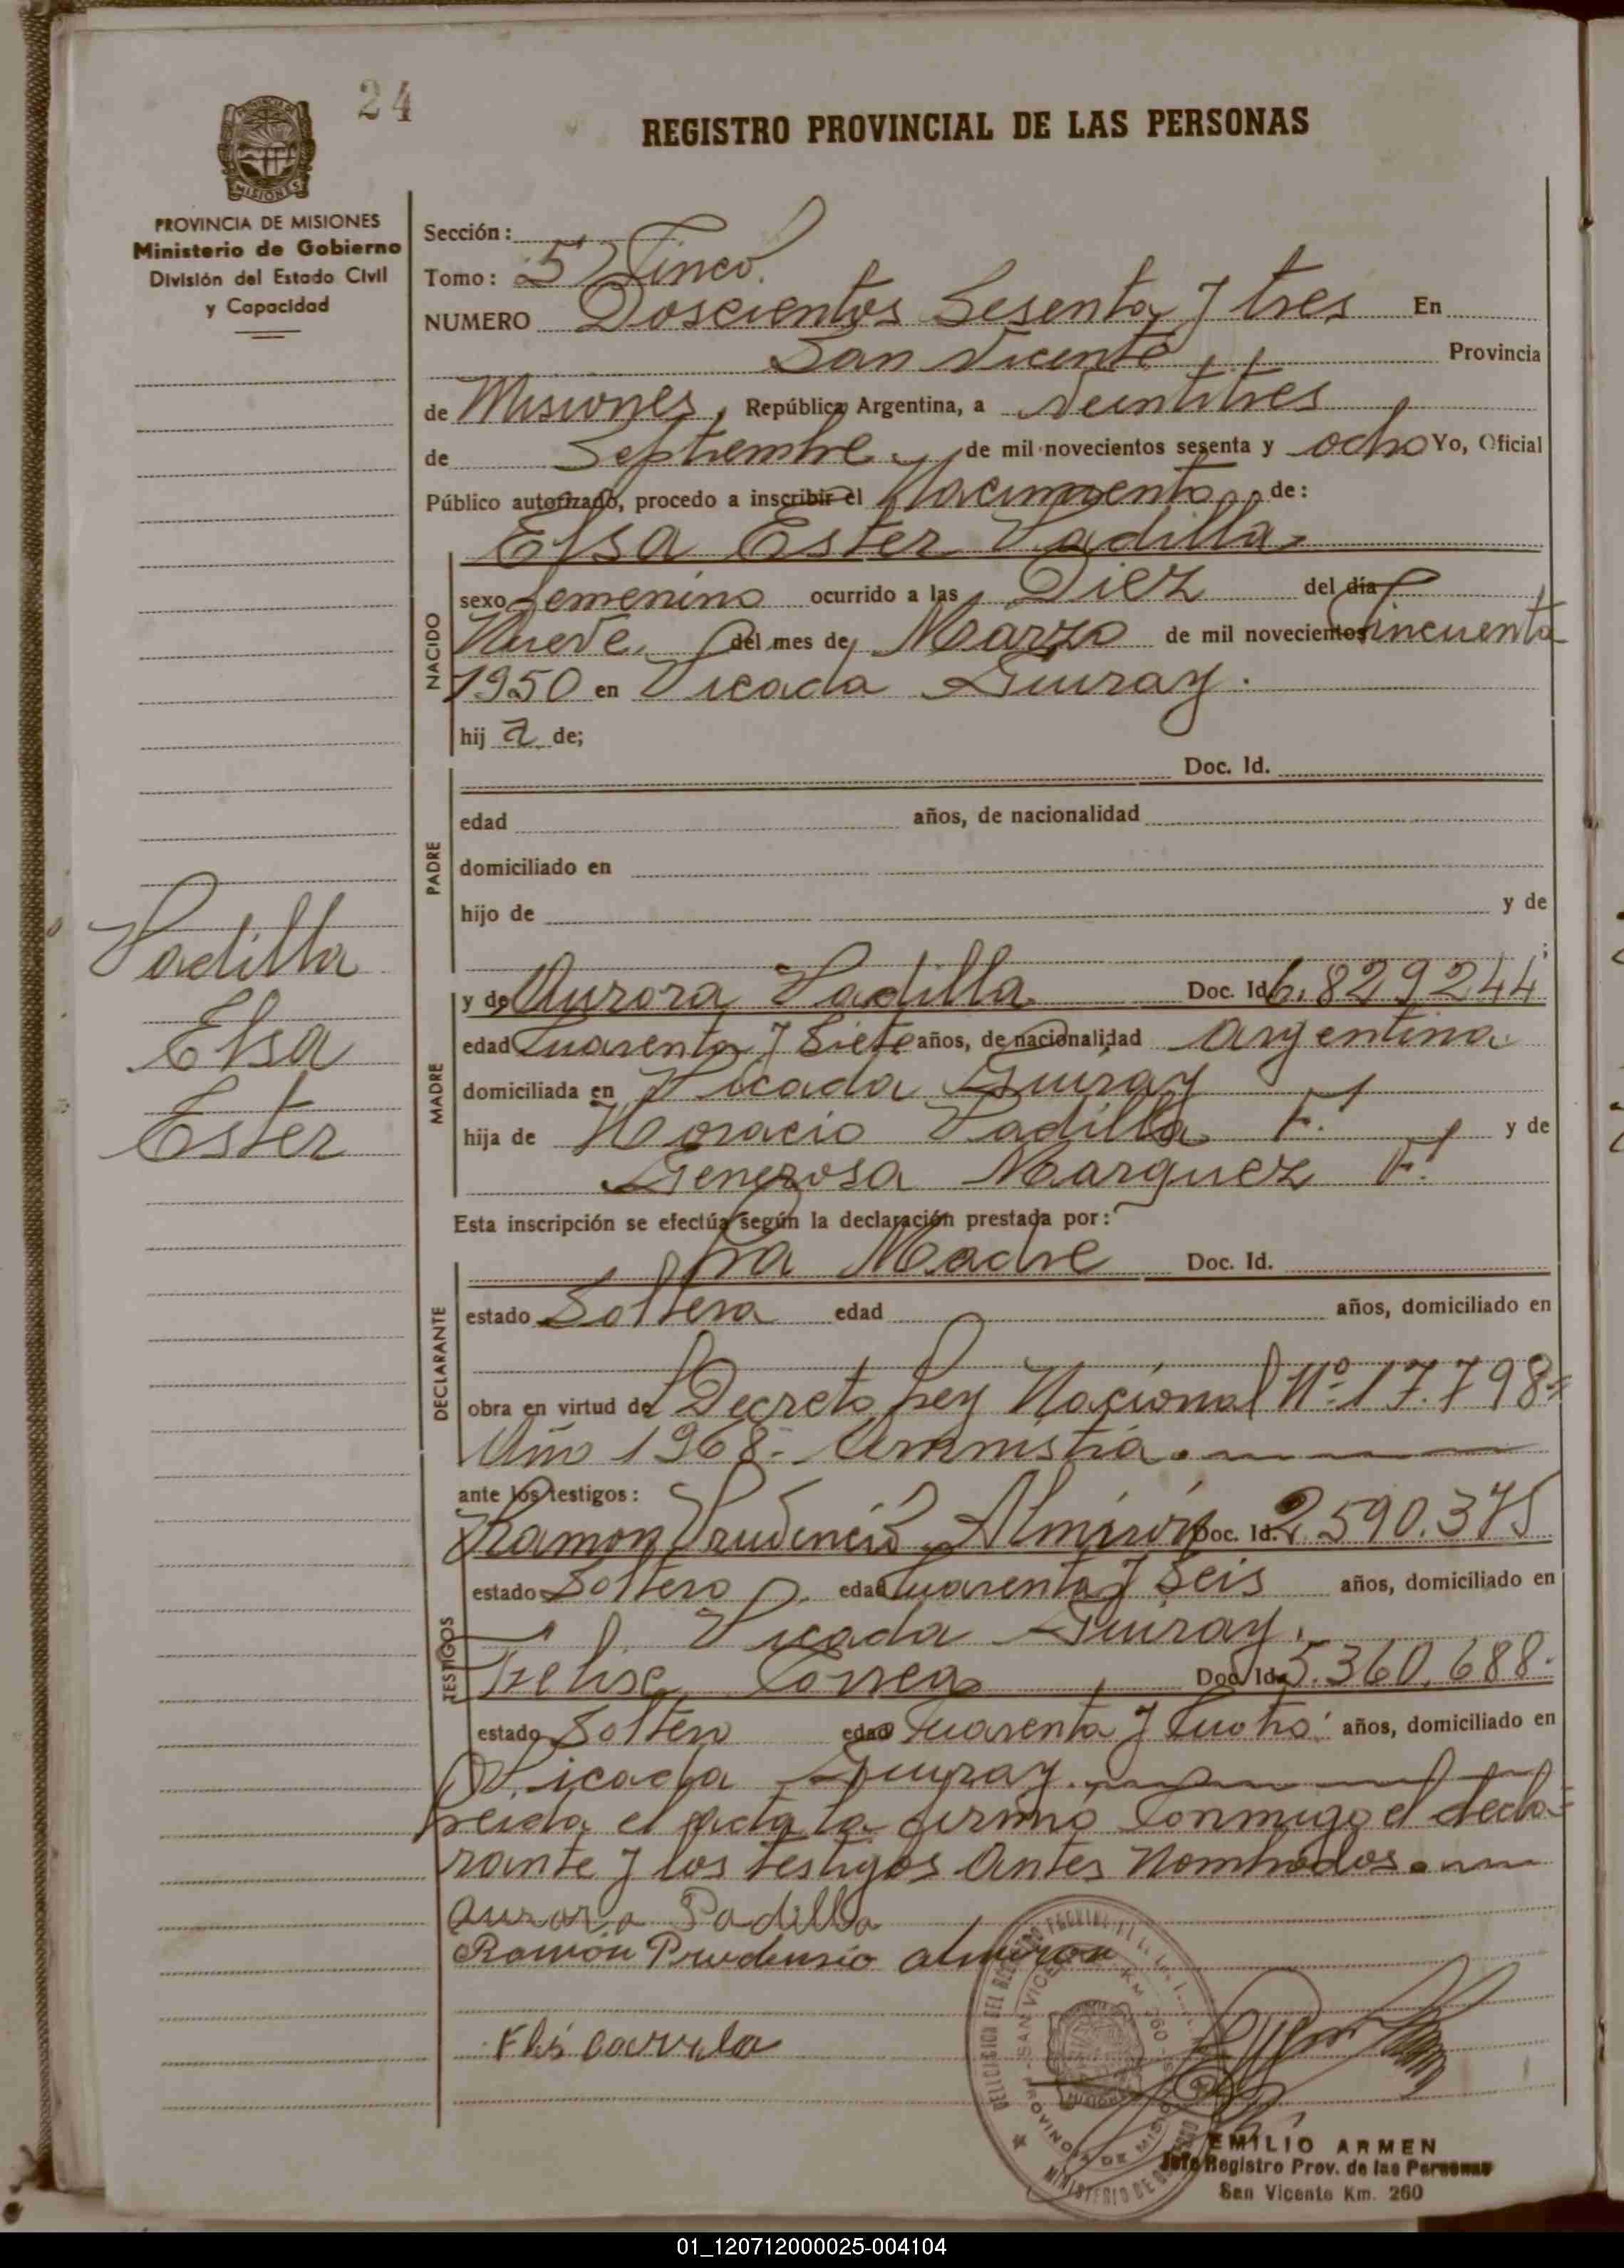 24
REGISTRO PROVINCIAL DE LAS PERSONAS
PROVINCIA DE MISIONES
Ministerio de Gobierno
División del Estado Civil
y Capacidad
Sección:
Tomo: 5 Cinco.
NUMERO Doscientos Sesenta y tres En
San Vicente Provincia
de Misiones, República Argentina, a Veintitres
de Septiembre de mil novecientos sesenta y ocho Yo, Oficial
Público autorizado, procedo a inscribir el Nacimiento de:
Elsa Ester Padilla
NACIDO
sexo femenino ocurrido a las Diez del día
Nueve del mes de Marzo de mil novecientos Cincuenta
1950 en Picada Guiray.
hij a de;
PADRE
Doc. Id.
edad años, de nacionalidad
domiciliado en
hijo de y de
;
Padilla
Elsa
Ester
MADRE
y de Aurora Padilla Doc. Id 6.829244
edad Cuarenta y Siete años, de nacionalidad argentina
domiciliada en Picada Guiray
hija de Horacio Padilla F. y de
Generosa Marquez F.
Esta inscripción se efectúa según la declaración prestada por:
DECLARANTE
La Madre Doc. Id.
estado Soltera edad años, domiciliado en
obra en virtud de Decreto Ley Nacional Nº 17.798=
Año 1968- Amnistia.
TESTIGOS
ante los testigos:
Ramon Prudencio Almirón Doc. Id. 2.590.375
estado Soltero edad Cuarenta y Seis años, domiciliado en
Picada Guiray.
Felise Correa Doc. Id. 5.360.688.
estado Soltero edad Cuarenta y Cuatro años, domiciliado en
Picada Guiray.
Leida el acta la firmó Conmigo el decla=
rante y los testigos Antes Nombrados.
Aurora Padilla
Ramón Prudensio almiron
EMILIO ARMEN
Jefe Registro Prov. de las Personas
San Vicente Km. 260
01_120712000025-004104